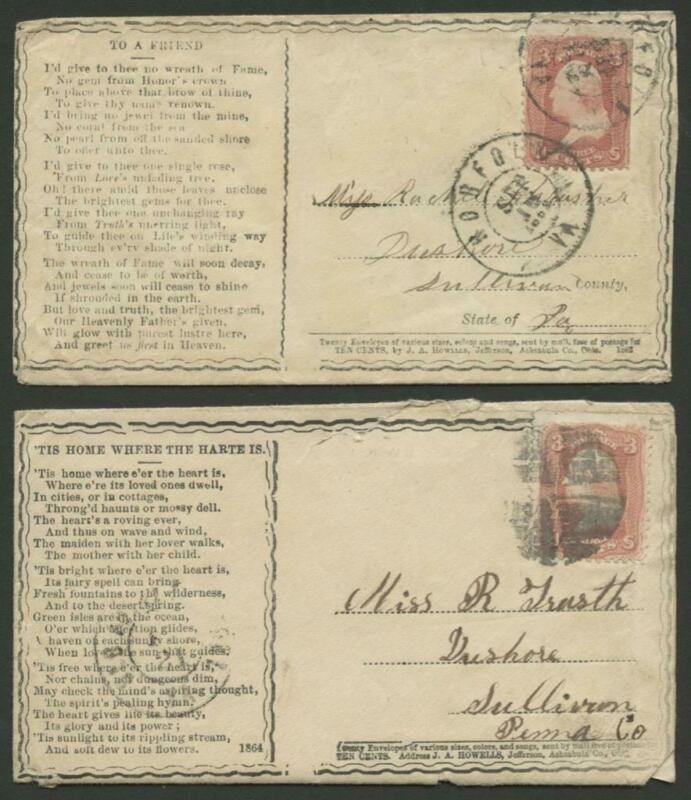 TO A FRIEND
I'd give to thee no wreath of Fame,
No gem from Honor's crown
To place above that brow of thine,
To give thy name renown.
I'd bring no jewel from the mine,
No coral from the sea
No pearl from off the sanded shore
To offer unto thee.
I'd give to thee one single rose,
From Love's unfading tree,
Oh! there amid those leaves unclose
The brightest gems for thee.
I'd give thee one unchanging ray
From Truth's unerring light,
To guide thee on Life's winding way
Through ev'ry shade of night.
The wreath of Fame will soon decay,
And cease to be of worth,
And jewels soon will cease to shine
If shrouded in the earth.
But love and truth, the brightest gem,
Our Heavenly Father's given,
Will glow with purest lustre here,
And greet us first in Heaven.
NORFOLK VA
SEP
Miss Rachel
Dushore
Sullivan County,
State of Pa
Twenty Envelopes of various sizes, colors and songs, sent by mail, free of postage for
TEN CENTS, by J. A. HOWELLS, Jefferson, Ashtabula Co., Ohio.
'TIS HOME WHERE THE HARTE IS.
'Tis home where e'er the heart is,
Where e're its loved ones dwell,
In cities, or in cottages,
Throng'd haunts or mossy dell.
The heart's a roving ever,
And thus on wave and wind,
The maiden with her lover walks,
The mother with her child.
'Tis bright where e'er the heart is,
Its fairy spell can bring
Fresh fountains to the wilderness,
And to the desert spring.
Green isles are in the ocean,
O'er which affection glides,
A haven on each sunny shore,
When love's the sun that guides.
'Tis free where e'er the heart is,
Nor chains, nor dungeons dim,
May check the mind's aspiring thought,
The spirit's pealing hymn.
The heart gives life its beauty,
Its glory and its power;
'Tis sunlight to its rippling stream,
And soft dew to its flowers.
1864
3 3
Miss R Trasth
Dushore
Sullivan
Penna Co
Twenty Envelopes of various sizes, colors, and songs, sent by mail free of
TEN CENTS. Address J. A. HOWELLS, Jefferson, Ashtabula Co.,